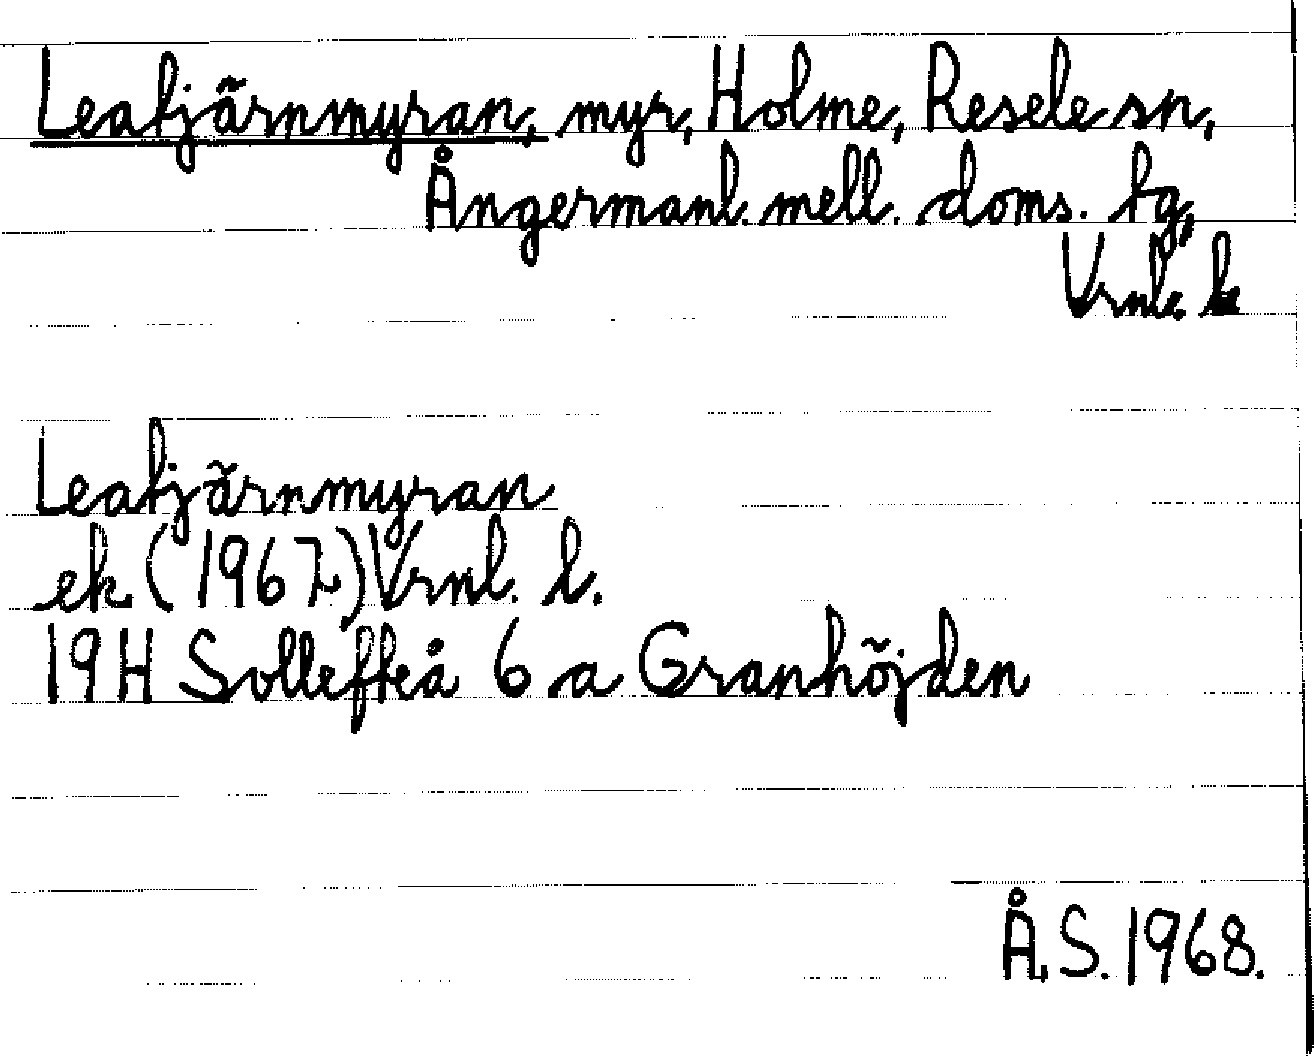 Leatjärnmyran, myr, Holme, Resele sn,
Ångermanl. mell. doms. tg,
Vrnl. l.
Leatjärnmyran
ek (1967) Vrnl. l.
19H Sollefteå 6 a Granhöjden
Å. S. 1968.